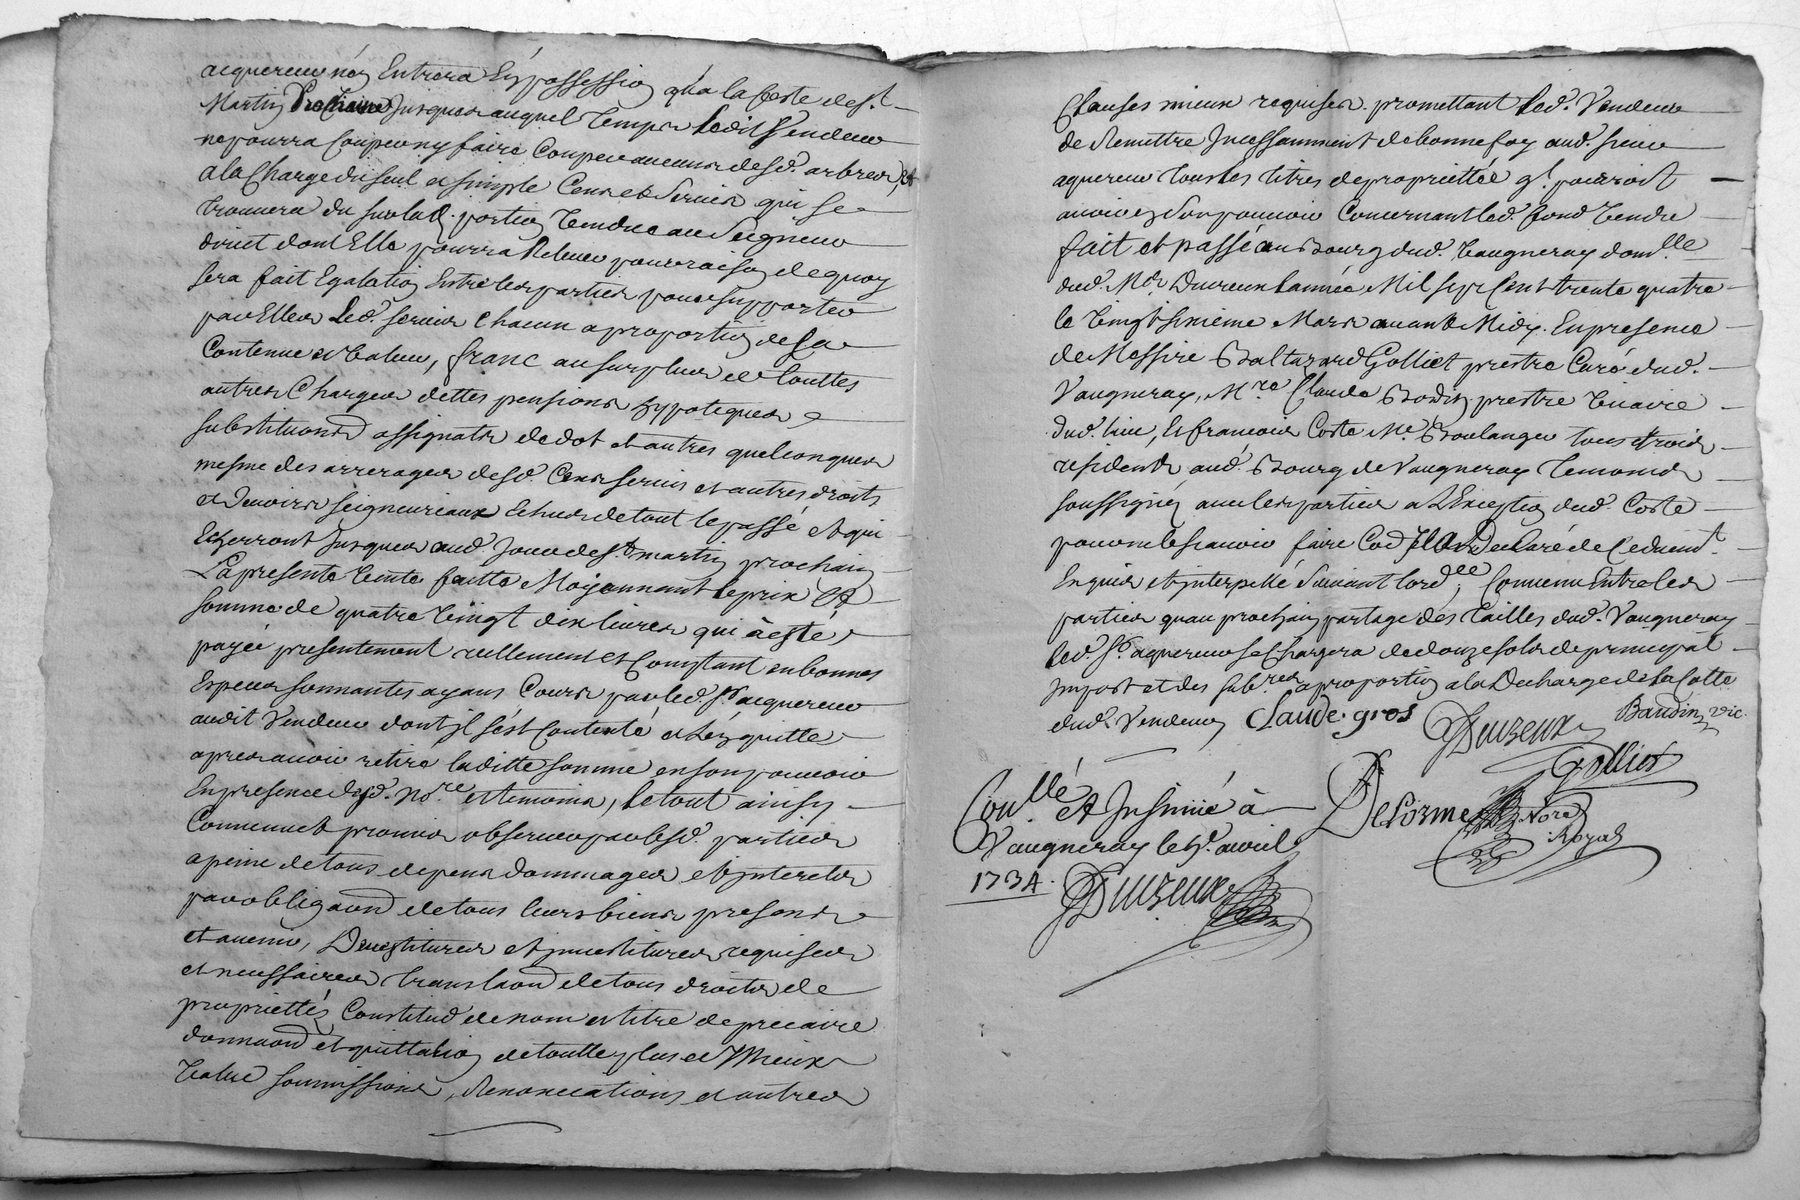 acquereur n'en Entrera En possession qu'a la feste de st
Martin Prochaine Jusques auquel temps Ledit Vendeur
ne pourra Couper ny faire Couper aucuns desd. arbres, et
a la Charge du seul et simple Cens et Servis qui se
trouvera du sur lad. portion Vendue au Seigneur
direct dont Elle pourra Relever pour raison de quoy
sera fait Egalation Entre les parties pour supporter
par Elles Led. servis chacun a proportion de sa
Contenue et Valeur, franc au surplus de touttes
autres Charges dettes pensions hypoteques
substituons assignats de dot et autres quelconques
mesme des arrerages desd. Cens servis et autres droits
et devoirs seigneuriaux Echus de tout le passé et qui
Echerront Jusques aud. Jour de st martin prochain
La presente Vente faitte Moyennant le prix et
somme de quatre Vingt dix livres qui a esté
payée presentement reellement et Comptant en bonnes
Especes sonnantes ayans Cours par led. sr acquereur
audit Vendeur dont il s'est Contenté et L'en quitte
apres avoir retiré laditte somme en son pouvoir
En presence desd. Nore. et temoins, le tout ainsy
Convenu et promis observer par lesd. parties
a peine de tous depens dommages et interets
par obligaon de tous leurs biens presents
et avenir, Devestitures et investitures requises
et necessaires translaon de tous droits de
proprietté, Constitud de nom et titre de precaire
donnaon et quittation de toutte plus et Mieux
Value soumissions, Renonciations et autres
Clauses mieux requises. promettant led. Vendeur
de Remettre Incessamment de bonne foy aud. sieur
aquereur tous les titres de proprietté qt. pourroit
avoir en son pouvoir Concernant led. fond Vendu
fait et passé au Bourg dud. Vaugneray domlle
dud. Mr Duvreux l'année Mil sept Cent trente quatre
le Vingt sixieme Mars avant Midy. En presence
de Messire Baltazard Golliet prestre Curé dud.
Vaugneray, Mre Claude Bodin prestre Vicaire
dud. lieu, Et francois Coste Me. Boulanger tous trois
residents aud. Bourg de Vaugneray temoins
soussignez avec les parties a L'Exception dud. Coste
pour ne le scavoir faire declaré de Ce dument.
Enquis et interpellé suivant lordce; Convenu Entre les
parties qu'au prochain partage des tailles dud. Vaugneray
led. sr. aquereur se Chargera de douze sols de principal
Impost et des subres a proportion a la Decharge de la Cotte
dud. Vendeur Claude. gros Baudin vic.
Golliet
Delorme Nore
Royal
Conllé et Insinué à
Vaugneray le avril
1734.